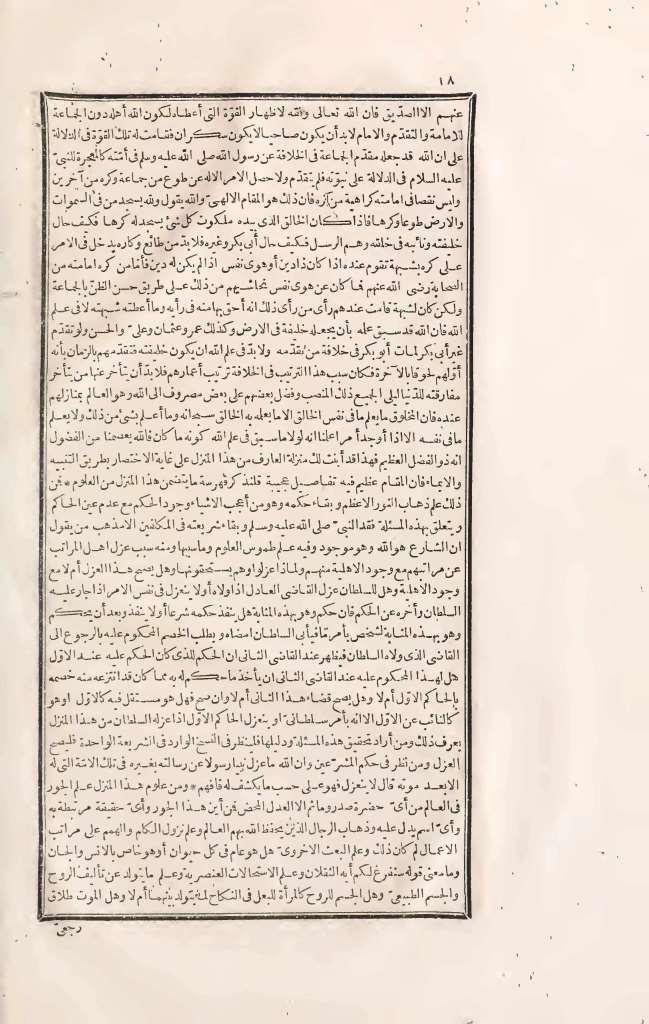 ١٨
عنهم الا الصديق فان الله تعالى وفقه لاظهار القوة التي أعطاه لكون الله أهله دون الجماعة
للامامة والتقدم والامام لابد أن يكون صاحيا لا يكون سكران فقامت له تلك القوة في الدلالة
على ان الله قد جعله مقدم الجماعة في الخلافة عن رسول الله صلى الله عليه وسلم في أمته كالمعجزة للنبي
عليه السلام في الدلالة على نبوته فلم يتقدم ولا حصل الامر الا له عن طوع من جماعة وكره من آخرين
وليس نقصا في امامته كراهية من كره فان ذلك هو المقام الالهي والله يقول ولله يسجد من في السموات
والارض طوعا وكرها فاذا كان الخالق الذي بيده ملكوت كل شئ يسجد له كرها فكيف حال
خليفته ونائبه في خلقه وهم الرسل فكيف حال أبي بكر وغيره فلابد من طائع وكاره يدخل في الامر
على كره بشبهة تقوم عنده اذا كان ذا دين أو هوى نفس اذا لم يكن له دين فأما من كره امامته من
الصحابة رضي الله عنهم فما كان عن هوى نفس نحاشيهم من ذلك على طريق حسن الظن بالجماعة
ولكن كان لشبهة قامت عندهم رأى من رأى ذلك انه أحق بها منه في رأيه وما أعطته شبهته لا في علم
الله فان الله قد سبق علمه بأن يجعله خليفة في الارض وكذلك عمر وعثمان وعلي والحسن ولو تقدم
غير أبي بكر لمات أبو بكر في خلافة من تقدمه ولا بد في علم الله ان يكون خليفة فتقدمهم بالزمان بأنه
أولهم لحوقا بالآخرة فكان سبب هذا الترتيب في الخلافة ترتيب أعمارهم فلابد أن يتأخر عنها من يتأخر
مفارقته للدنيا ليلي الجميع ذلك المنصب وفضل بعضهم على بعض مصروف الى الله وهو العالم بمنازلهم
عنده فان المخلوق ما يعلم ما في نفس الخالق الا ما يعلمه به الخالق سبحانه وما أعلم بشئ من ذلك ولا يعلم
ما في نفسه الا اذا أوجد أمرا علمنا انه لولا ما سبق في علم الله كونه ما كان فالله يعصمنا من الفضول
انه ذو الفضل العظيم فهذا قد أبنت لك منزلة العارف من هذا المنزل على غاية الاختصار بطريق التنبيه
والايماء فان المقام عظيم فيه تفاصيل عجيبة فلنذكر فهرسة ما يتضمن هذا المنزل من العلوم * فمن
ذلك علم ذهاب النور الاعظم وبقاء حكمه وهو من أعجب الاشياء وجود الحكم مع عدم عين الحاكم
ويتعلق بهذه المسئلة فقد النبي صلى الله عليه وسلم وبقاء شريعته في المكلفين الا مذهب من يقول
ان الشارع هو الله وهو موجود وفيه علم طموس العلوم وما سببها ومنه سبب عزل اهل المراتب
عن مراتبهم مع وجود الاهلية منهم ولماذا عزلوا وهم يستحقونها وهل يصح هذا العزل أم لا مع
وجود الاهلية وهل للسلطان عزل القاضي العادل اذا ولاه أو لا ينعزل في نفس الامر اذا جار عليه
السلطان وأخره عن الحكم فان حكم وهو بهذه المثابة هل ينفذ حكمه شرعا أو لا ينفذ وبعد أن يحكم
وهو بهذه المثابة لشخص بأمر ما فيأبى السلطان امضاه ويطلب الخصم المحكوم عليه بالرجوع الى
القاضي الذي ولاه السلطان فيظهر عند القاضي الثاني ان الحكم للذي كان الحكم عليه عند الاول
هل لهذا المحكوم عليه عند القاضي الثاني ان يأخذ ما حكم له به مما كان قد انتزعه منه خصمه
بالحاكم الاول أم لا وهل يصح قضاء هذا الثاني أم لا وان صح فهل هو مستقل فيه كالاول او هو
كالنائب عن الاول الا انه بأمر سلطاني او ينعزل الحاكم الاول اذا عزله السلطان من هذا المنزل
يعرف ذلك ومن أراد تحقيق هذه المسئلة ودليلها فلينظر في النسخ الوارد في الشريعة الواحدة فليصح
العزل ومن نظر في حكم المشرعين وان الله ما عزل نبيا رسولا عن رسالته بغيره في تلك الامة التي له
الا بعد موته قال لا ينعزل فهو على حسب ما يكشف له فافهم * ومن علوم هذا المنزل علم الجور
في العالم من أي حضرة صدر وما ثم الا العدل المحض فمن أين هذا الجور وأي حقيقة مرتبطة به
وأي اسم يدل عليه وذهاب الرجال الذين يحفظ الله بهم العالم وعلم نزول الكلم والهمم على مراتب
الاعمال لم كان ذلك وعلم البعث الاخروي هل هو عام في كل حيوان أو هو خاص بالانس والجان
وما معنى قوله سنفرغ لكم أيه الثقلان وعلم الاستحالات العنصرية وعلم ما يتولد عن تأليف الروح
والجسم الطبيعي وهل الجسم للروح كالمرأة للبعل في النكاح لما يتولد بينهما أم لا وهل الموت طلاق
رجعي